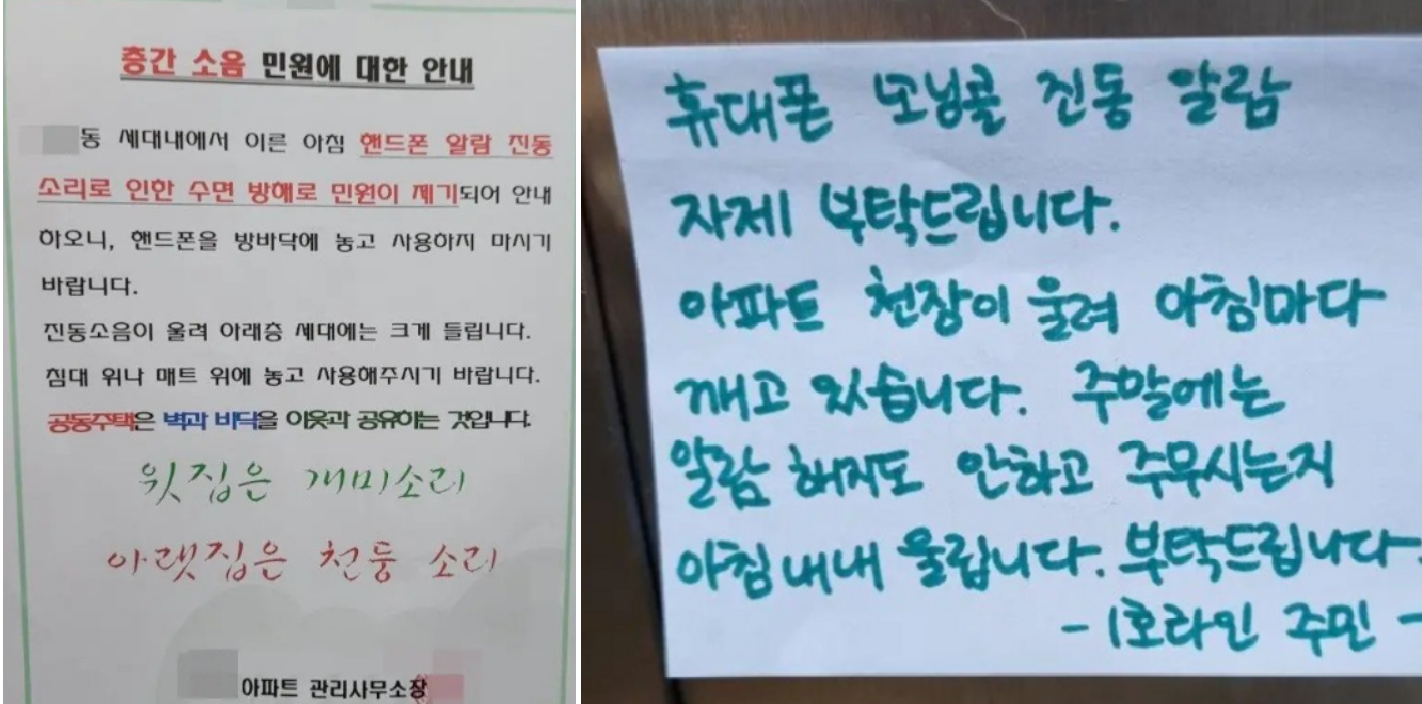 층간 소음 민원에 대한 안내
동 세대내에서 이른 아침 핸드폰 알람 진동
소리로 인한 수면 방해로 민원이 제기되어 안내
하오니, 핸드폰을 방바닥에 놓고 사용하지 마시기
바랍니다.
진동소음이 울려 아래층 세대에는 크게 들립니다.
침대 위나 매트 위에 놓고 사용해주시기 바랍니다.
공동주택은 벽과 바닥을 이웃과 공유하는 것입니다.
윗집은 개미소리
아랫집은 천둥 소리
아파트 관리사무소장
휴대폰 모닝콜 진동 알람
자제 부탁드립니다.
아파트 천장이 울려 아침마다
깨고 있습니다. 주말에는
알람 해지도 안하고 주무시는지
아침내내 울립니다. 부탁드립니다.
- 1호라인 주민 -